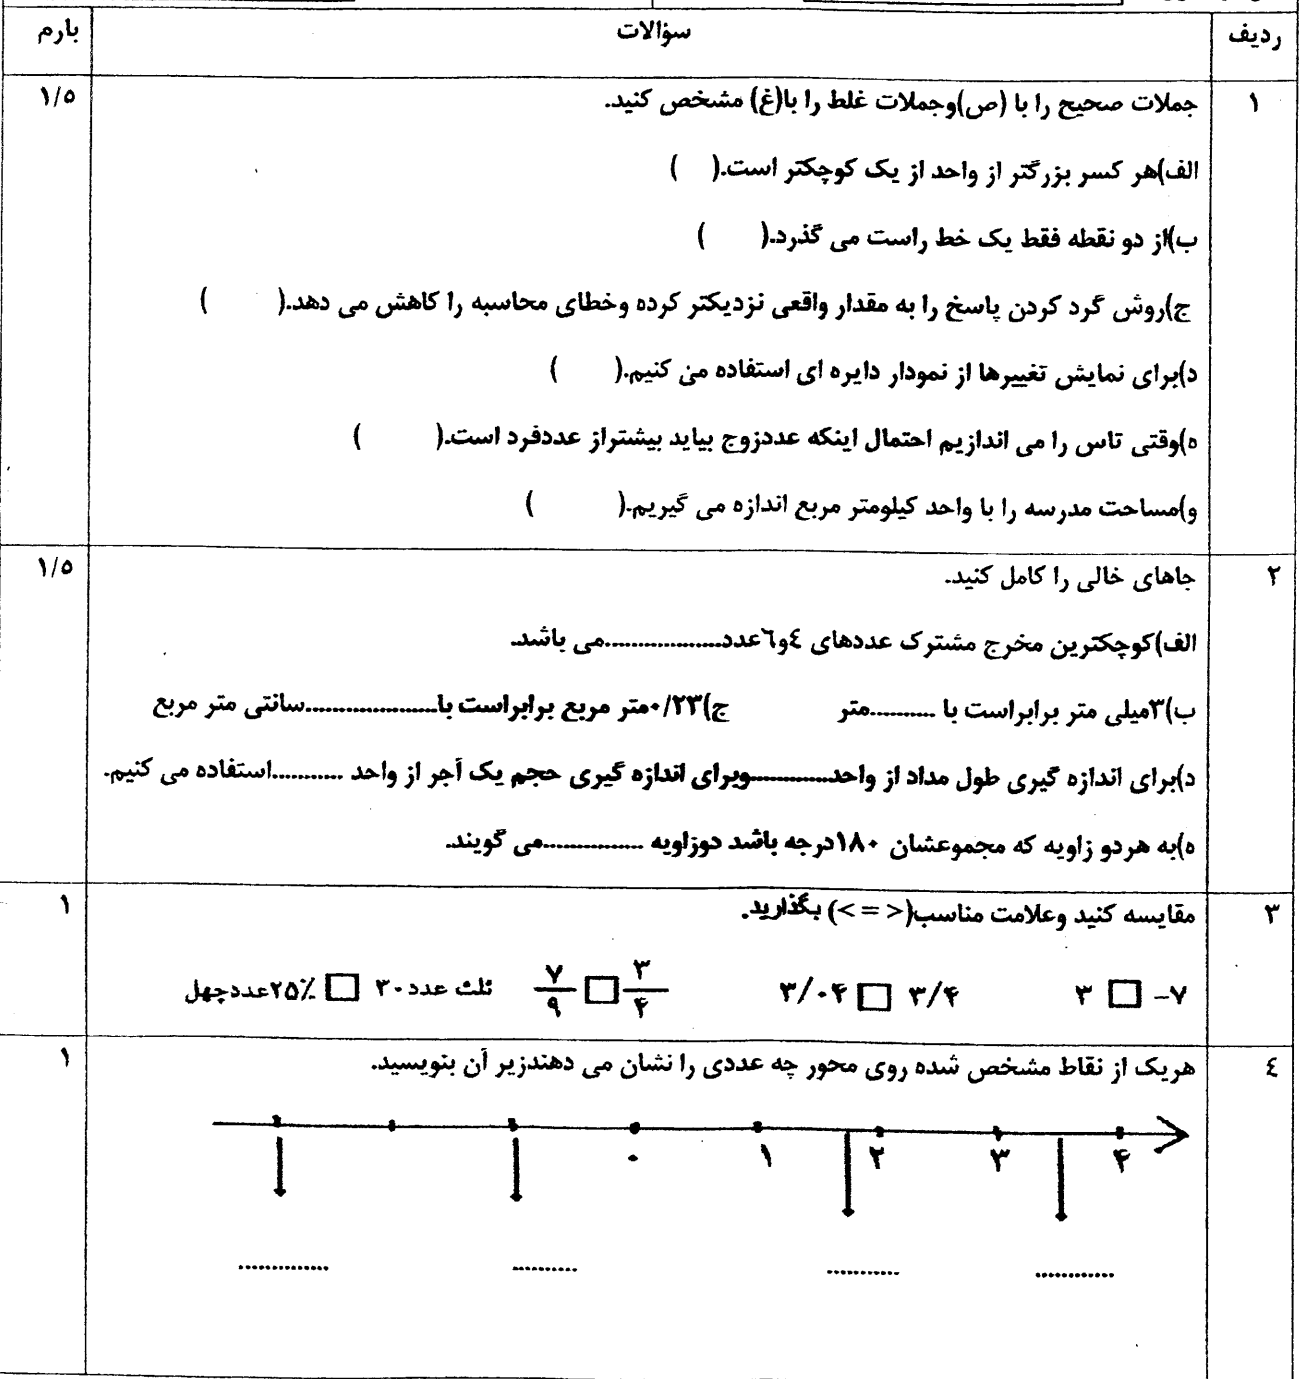 ردیف سؤالات بارم
۱ جملات صحیح را با (ص)وجملات غلط را با(غ) مشخص کنید. ۱/۵
الف)هر کسر بزرگتر از واحد از یک کوچکتر است.( )
ب)از دو نقطه فقط یک خط راست می گذرد.( )
ج)روش گرد کردن پاسخ را به مقدار واقعی نزدیکتر کرده وخطای محاسبه را کاهش می دهد.( )
د)برای نمایش تغییرها از نمودار دایره ای استفاده می کنیم.( )
ه)وقتی تاس را می اندازیم احتمال اینکه عددزوج بیاید بیشتراز عددفرد است.( )
و)مساحت مدرسه را با واحد کیلومتر مربع اندازه می گیریم.( )
۲ جاهای خالی را کامل کنید. ۱/۵
الف)کوچکترین مخرج مشترک عددهای ٤و٦عدد..................می باشد.
ب)۳میلی متر برابراست با ..........متر ج)۰/۲۳متر مربع برابراست با....................سانتی متر مربع
د)برای اندازه گیری طول مداد از واحد............وبرای اندازه گیری حجم یک آجر از واحد ...........استفاده می کنیم.
ه)به هردو زاویه که مجموعشان ۱۸۰درجه باشد دوزاویه ...............می گویند.
۳ مقایسه کنید وعلامت مناسب(< = >) بگذارید. ۱
-۷ □ ۳ ۳/۴ □ ۳/۰۴ ۳/۴ □ ۷/۹ ثلث عدد۳۰ □ ۲۵٪عددچهل
٤ هریک از نقاط مشخص شده روی محور چه عددی را نشان می دهندزیر آن بنویسید. ۱
۰ ۱ ۲ ۳ ۴
.............. .......... ........... ............